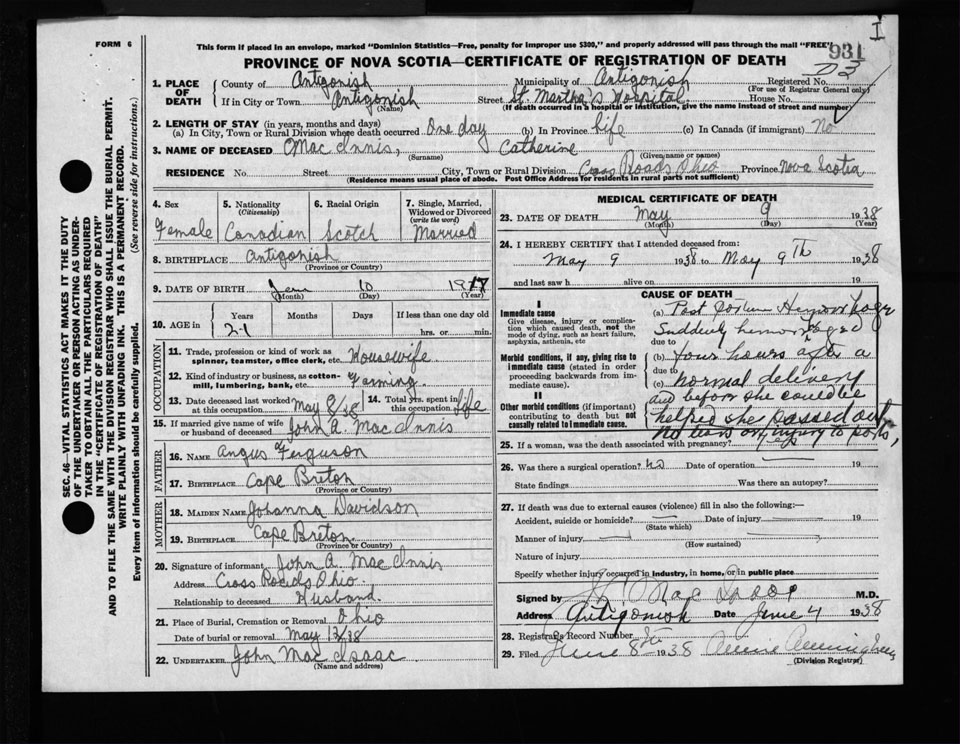 I
FORM 6
This form if placed in an envelope, marked "Dominion Statistics—Free, penalty for improper use $300," and properly addressed will pass through the mail "FREE"
931
PROVINCE OF NOVA SCOTIA—CERTIFICATE OF REGISTRATION OF DEATH
1. PLACE OF DEATH
County of Antigonish Municipality of Antigonish Registered No.
(For use of Registrar General only)
If in City or Town Antigonish Street St. Martha's Hospital House No.
(Name) (If death occurred in a hospital or institution, give the name instead of street and number)
2. LENGTH OF STAY (in years, months and days)
(a) In City, Town or Rural Division where death occurred One day (b) In Province Life (c) In Canada (if immigrant) No
3. NAME OF DECEASED MacInnis, Catherine
(Surname) (Given name or names)
RESIDENCE No. Street City, Town or Rural Division Cross Roads Ohio Province Nova Scotia
(Residence means usual place of abode. Post Office Address for residents in rural parts not sufficient)
SEC. 46—VITAL STATISTICS ACT MAKES IT THE DUTY
OF THE UNDERTAKER OR PERSON ACTING AS UNDER-
TAKER TO OBTAIN ALL THE PARTICULARS REQUIRED
IN THE "CERTIFICATE OF REGISTRATION OF DEATH"
AND TO FILE THE SAME WITH THE DIVISION REGISTRAR WHO SHALL ISSUE THE BURIAL PERMIT.
WRITE PLAINLY WITH UNFADING INK. THIS IS A PERMANENT RECORD.
Every item of information should be carefully supplied. (See reverse side for instructions.)
4. Sex 5. Nationality (Citizenship) 6. Racial Origin 7. Single, Married, Widowed or Divorced (write the word)
Female Canadian Scotch Married
8. BIRTHPLACE Antigonish
(Province or Country)
9. DATE OF BIRTH 10 1917
(Month) (Day) (Year)
10. AGE in Years Months Days If less than one day old
21 hrs. or min.
OCCUPATION
11. Trade, profession or kind of work as spinner, teamster, office clerk, etc. Housewife
12. Kind of industry or business, as cotton-mill, lumbering, bank, etc. Farming
13. Date deceased last worked at this occupation May 8/38 14. Total yrs. spent in this occupation Life
15. If married give name of wife or husband of deceased John A. MacInnis
FATHER
16. NAME Angus Ferguson
17. BIRTHPLACE Cape Breton
(Province or Country)
MOTHER
18. MAIDEN NAME Johanna Davidson
19. BIRTHPLACE Cape Breton
(Province or Country)
20. Signature of informant John A. MacInnis
Address Cross Roads Ohio
Relationship to deceased Husband
21. Place of Burial, Cremation or Removal Ohio
Date of burial or removal May 12/38
22. UNDERTAKER John MacIsaac
(Name and address)
MEDICAL CERTIFICATE OF DEATH
23. DATE OF DEATH May 9 1938
(Month) (Day) (Year)
24. I HEREBY CERTIFY that I attended deceased from:
May 9 1938 to May 9Th 1938
and last saw h alive on 19
CAUSE OF DEATH
I
Immediate cause
Give disease, injury or complication which caused death, not the mode of dying, such as heart failure, asphyxia, asthenia, etc
Morbid conditions, if any, giving rise to immediate cause (stated in order proceeding backwards from immediate cause).
II
Other morbid conditions (if important) contributing to death but not causally related to immediate cause.
(a) Post Partum Hemorrhage
Suddenly hemorrhaged
due to
(b) four hours after a
due to
(c) normal delivery
and before she could be
helped she passed out
no tears or injury to parts,
25. If a woman, was the death associated with pregnancy? Yes
26. Was there a surgical operation? no Date of operation 19
State findings Was there an autopsy?
27. If death was due to external causes (violence) fill in also the following:—
Accident, suicide or homicide? Date of injury 19
(State which)
Manner of injury
(How sustained)
Nature of injury
Specify whether injury occurred in industry, in home, or in public place
Signed by M.D.
Address Antigonish Date June 4 1938
28. Registrar's Record Number
29. Filed June 8th 1938
(Division Registrar)